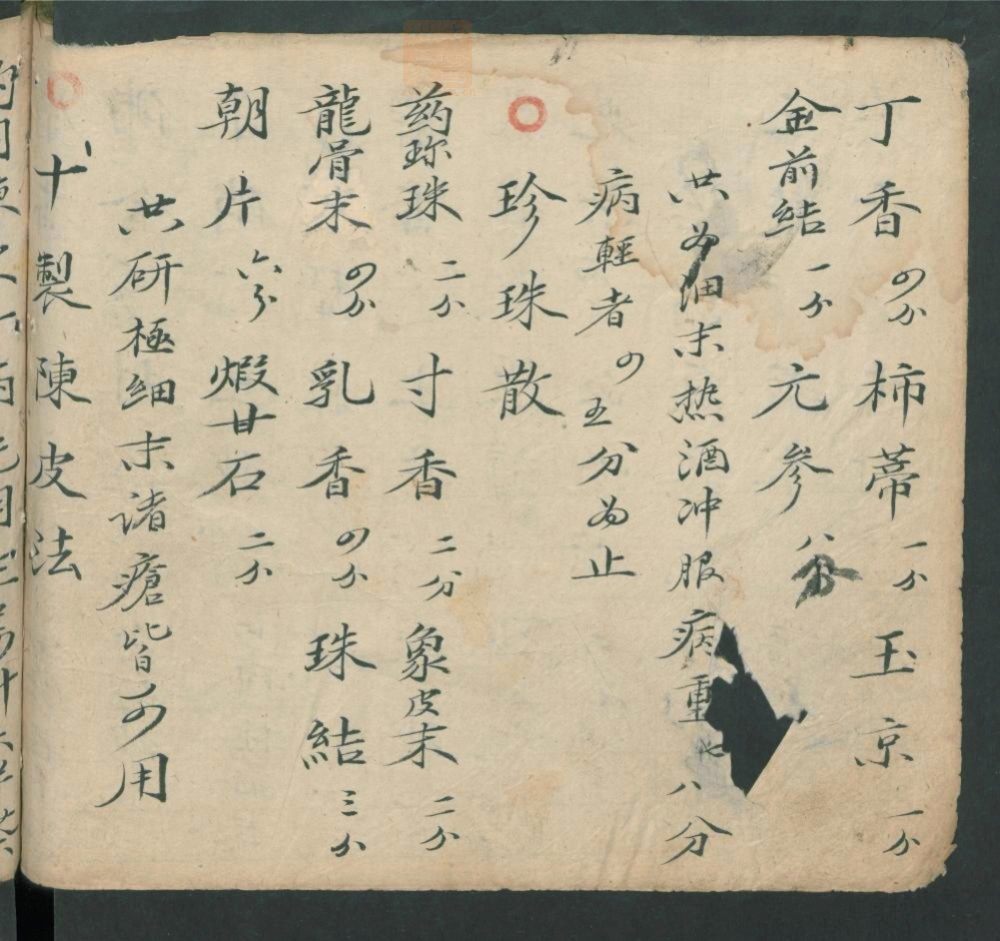 丁香 四分 柿蒂 一分 玉京 一分
金前結 一分 元參 八分
共為细末热酒冲服病重 七八分
病輕者四五分為止
○珍珠散
药珎珠 二分 寸香 二分 象皮末 二分
龍骨末 四分 乳香 四分 珠結 三分
朝片 六分 煆甘石 二分
共研極細末诸瘡皆可用
○十製陳皮法